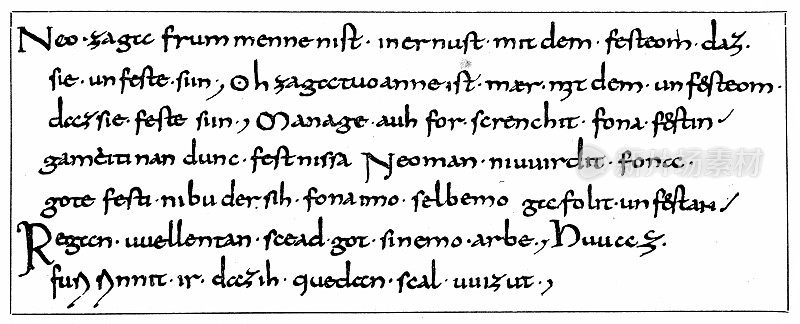 Neo · zaga frummenne nist · in ernust · mit dem · festeom · daz ·
sie · unfeste · sun ; Oh zagatuoanne ist · mær · mit dem · unfesteom ·
daz sie · feste sun ; Manage · auh for · screnchit · fona · festin ·
gameitinan dunc · festnissa Neoman · niuuirdit · fona ·
gote festi · nibu der sih · fona imo · selbemo gafolit · unfestan
Regan · uuellentan · scead · got · sinemo · arbe ; Huuaz ·
ir · daz ih · quedan · scal · uuizut ;
iStock